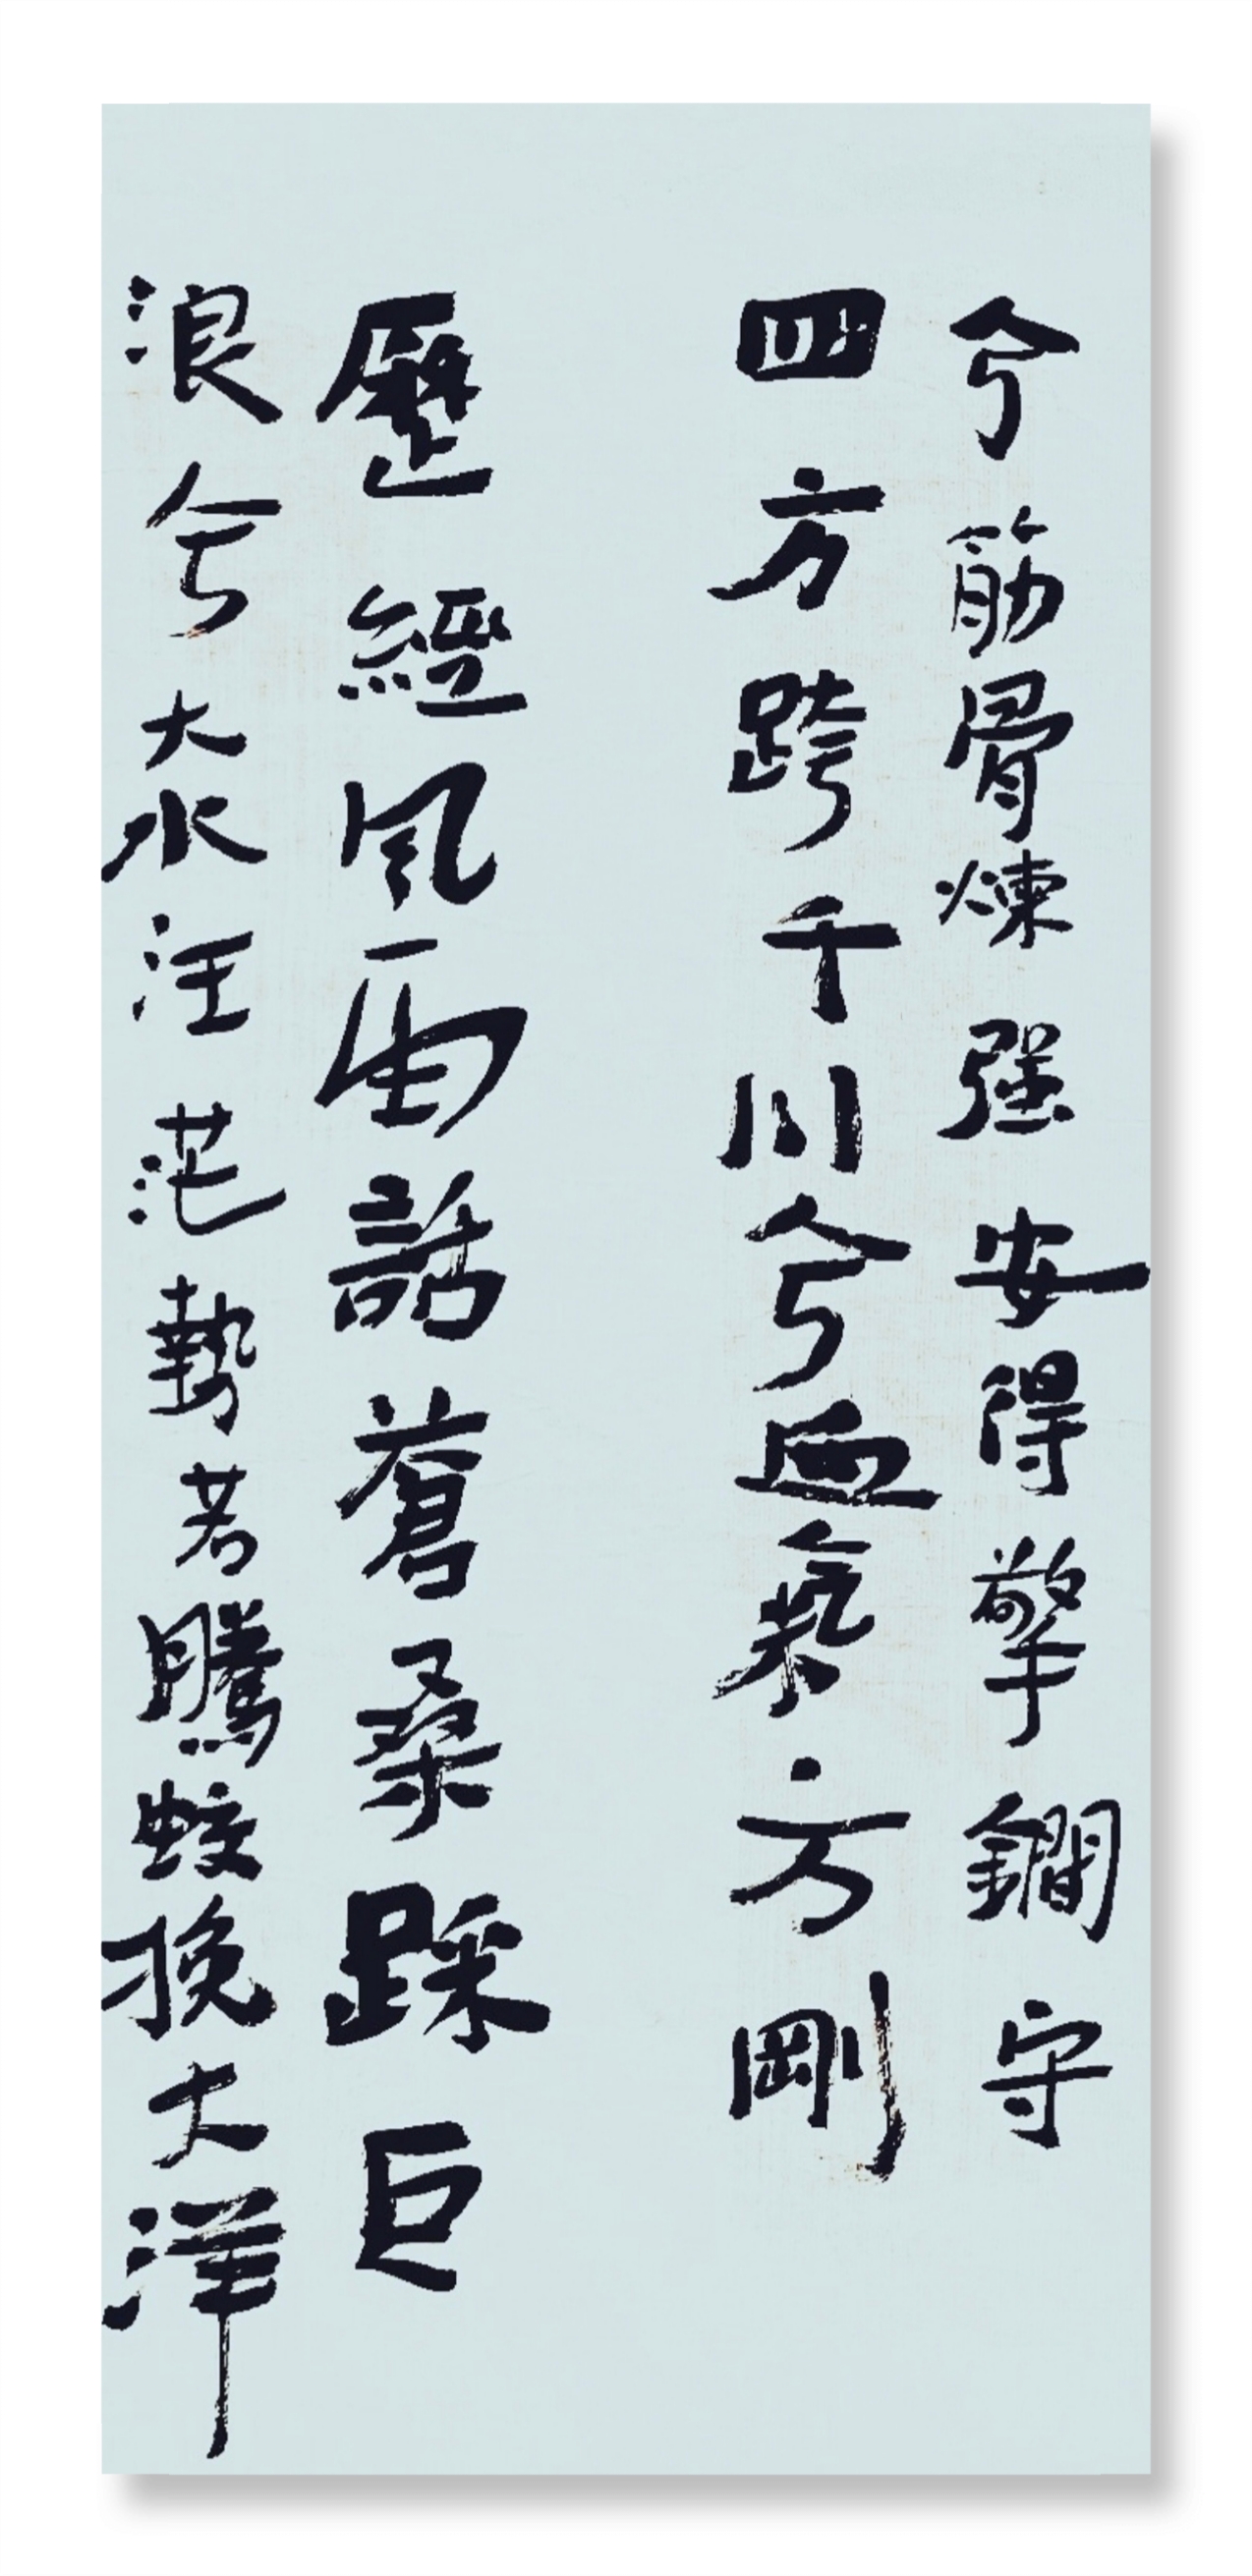 兮筋骨煉强安得擎鐗守
四方跨千川兮血氣方剛
歷經風雨話蒼桑踩巨
浪兮大水汪茫勢若騰蛟挽大洋